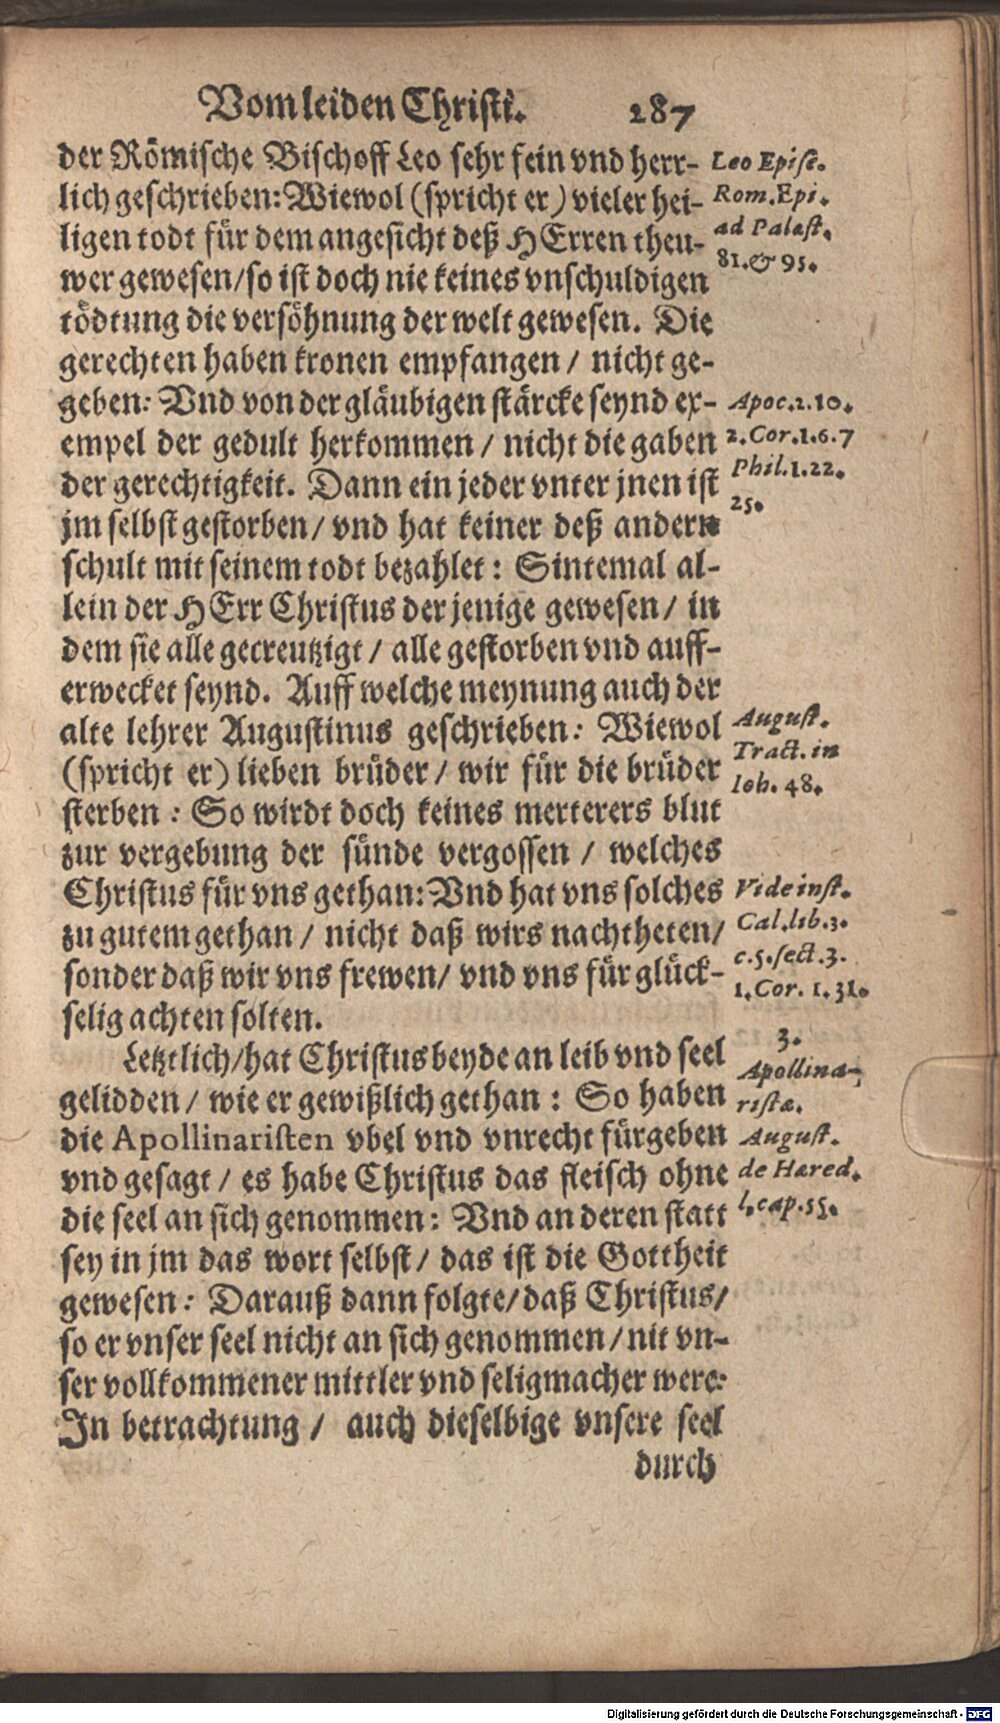 Vom leiden Christi. 287
der Römische Bischoff Leo sehr fein vnd herr-
lich geschrieben: Wiewol (spricht er) vieler hei-
ligen todt für dem angesicht deß HErren theu-
wer gewesen/ so ist doch nie keines vnschuldigen
tödtung die versöhnung der welt gewesen. Die
gerechten haben kronen empfangen/ nicht ge-
geben: Vnd von der gläubigen stärcke seynd ex-
empel der gedult herkommen/ nicht die gaben
der gerechtigkeit. Dann ein jeder vnter jnen ist
jm selbst gestorben/ vnd hat keiner deß andern
schult mit seinem todt bezahlet: Sintemal al-
lein der HErr Christus der jenige gewesen/ in
dem sie alle gecreutzigt/ alle gestorben vnd auff-
erwecket seynd. Auff welche meynung auch der
alte lehrer Augustinus geschrieben: Wiewol
(spricht er) lieben brüder/ wir für die brüder
sterben: So wirdt doch keines merterers blut
zur vergebung der sünde vergossen/ welches
Christus für vns gethan: Vnd hat vns solches
zu gutem gethan/ nicht daß wirs nachtheten/
sonder daß wir vns frewen/ vnd vns für glück-
selig achten solten.
Letztlich/ hat Christus beyde an leib vnd seel
gelidden/ wie er gewißlich gethan: So haben
die Apollinaristen vbel vnd vnrecht fürgeben
vnd gesagt/ es habe Christus das fleisch ohne
die seel an sich genommen: Vnd an deren statt
sey in jm das wort selbst/ das ist die Gottheit
gewesen: Darauß dann folgte/ daß Christus/
so er vnser seel nicht an sich genommen/ nit vn-
ser vollkommener mittler vnd seligmacher were:
In betrachtung/ auch dieselbige vnsere seel
durch
Leo Episc.
Rom. Epi.
ad Palæst.
81. & 95.
Apoc. 2. 10.
2. Cor. 1. 6. 7
Phil. 1. 22.
25.
August.
Tract. in
Ioh. 48.
Vide inst.
Cal. lib. 3.
c. 5. sect. 3.
1. Cor. 1. 31.
3.
Apollina-
ristæ.
August.
de Hæred.
l. cap. 55.
Digitalisierung gefördert durch die Deutsche Forschungsgemeinschaft - DFG